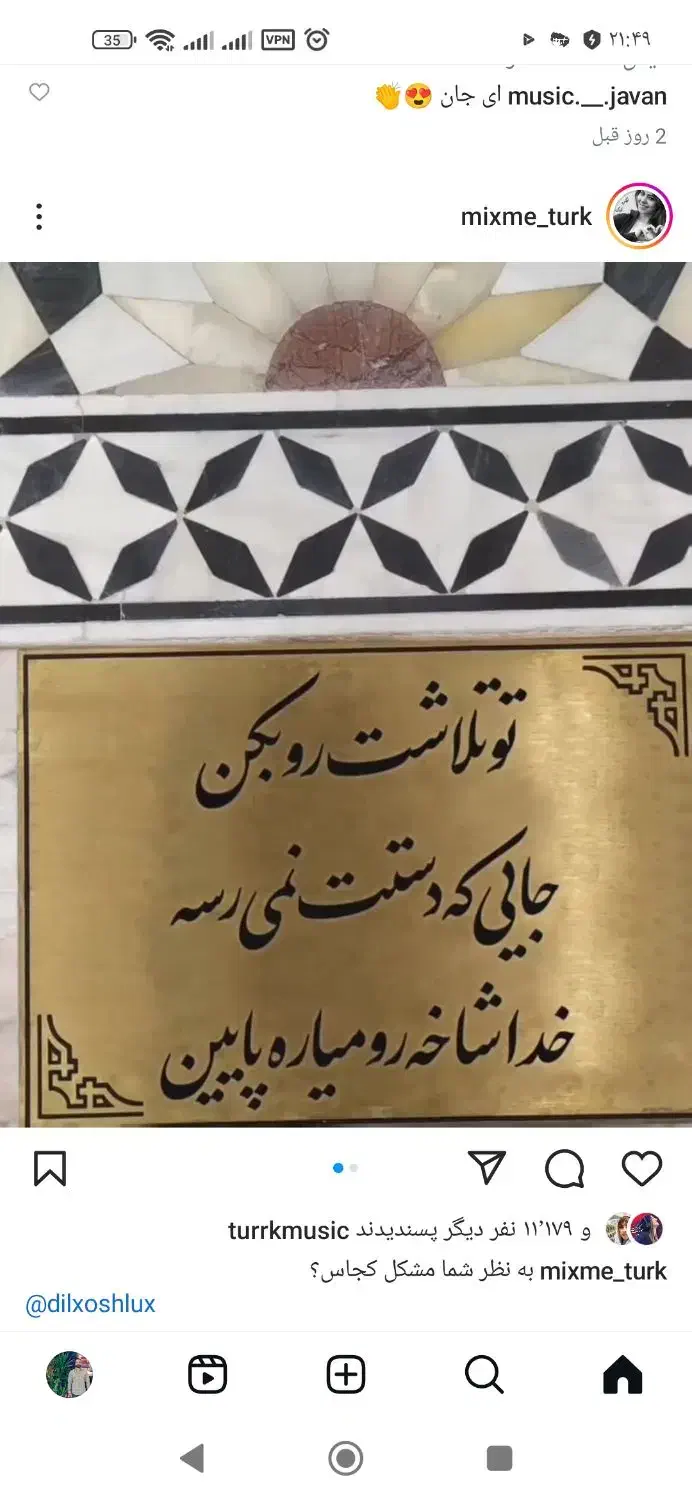 35 VPN ۲۱:۴۹
music.__.javan ای جان 😍👏
2 روز قبل
mixme_turk
تو تلاشت رو بکن
جایی که دستت نمی رسه
خدا شاخه رو میاره پایین
turrkmusic و ۱۱٬۱۷۹ نفر دیگر پسندیدند
mixme_turk به نظر شما مشکل کجاس؟
@dilxoshlux